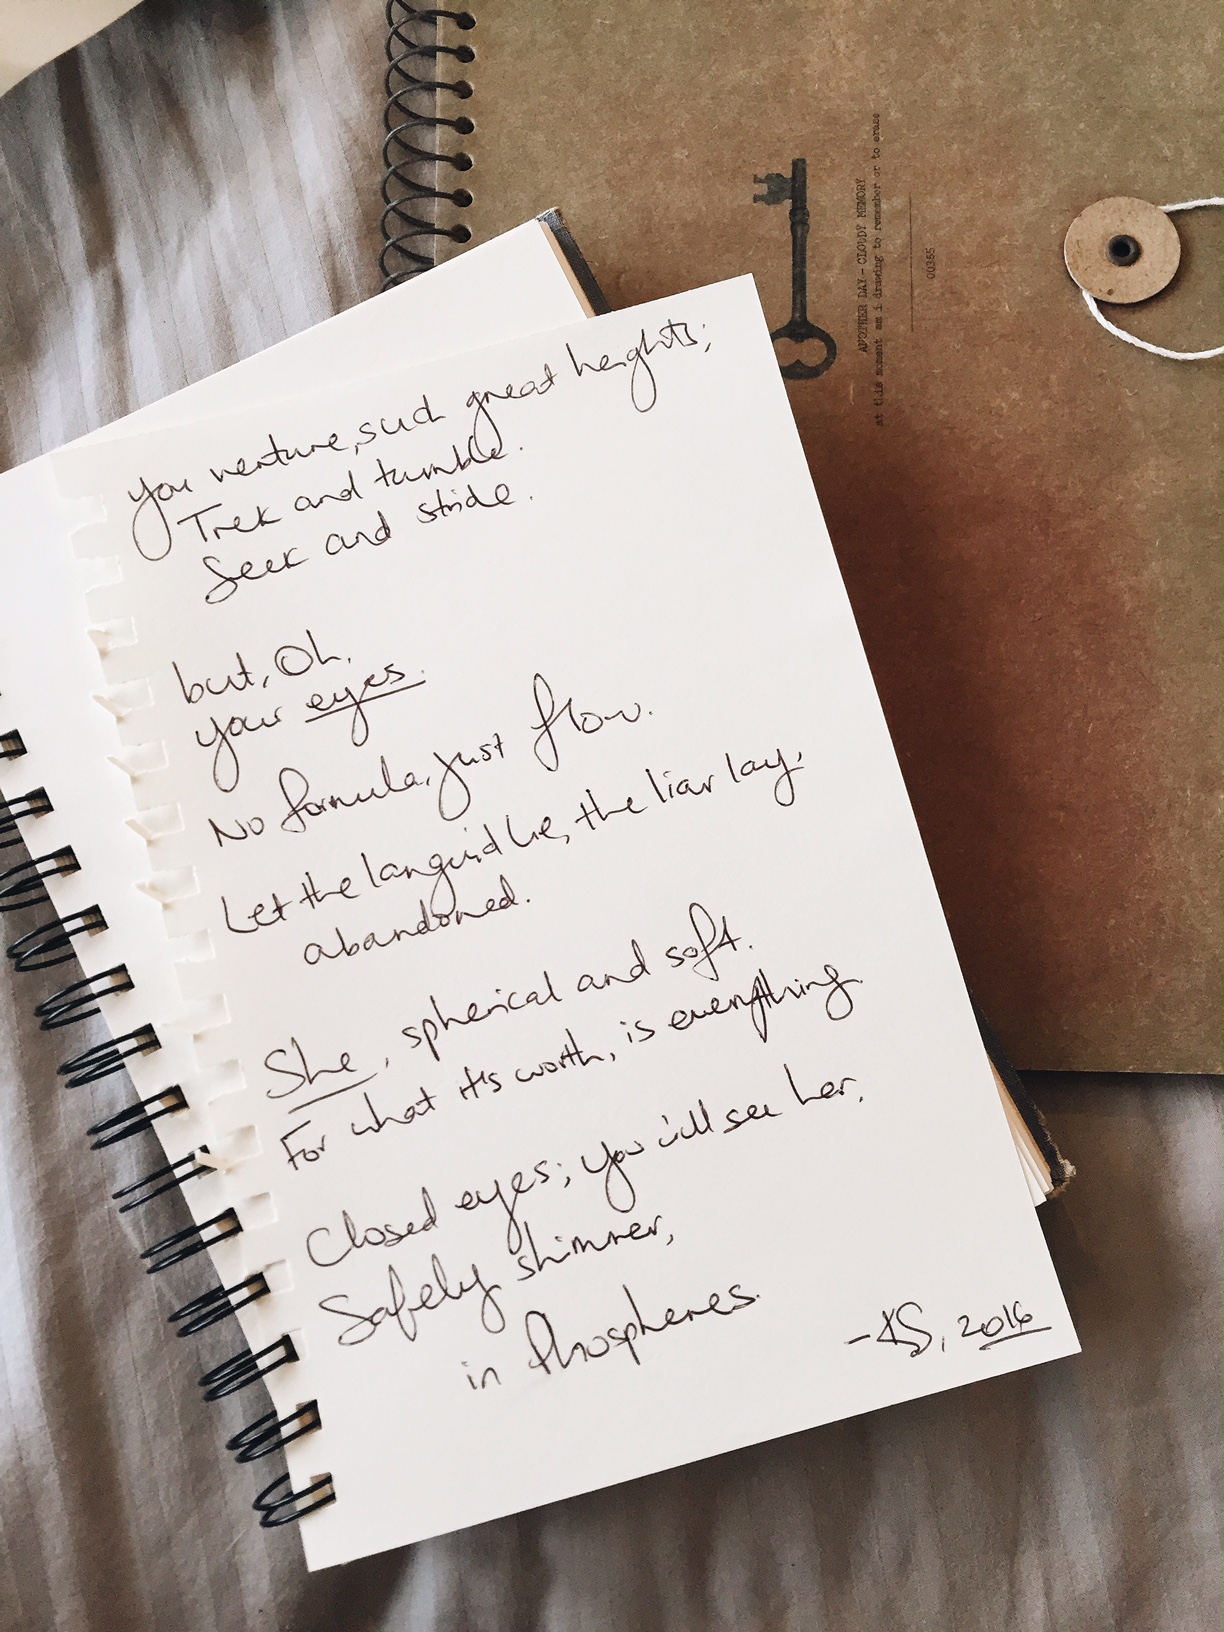 you venture, such great heights;
Trek and tumble.
Seek and stride.
but, Oh,
your eyes.
No formula, just flow.
Let the languid lie, the liar lay,
abandoned.
She, spherical and soft.
For what it's worth, is everything.
Closed eyes; you will see her,
Safely shimmer,
in Phosphenes.
-KS, 2016
ANOTHER DAY - CLOUDY MEMORY
at this moment am i drawing to remember or to erase
00355